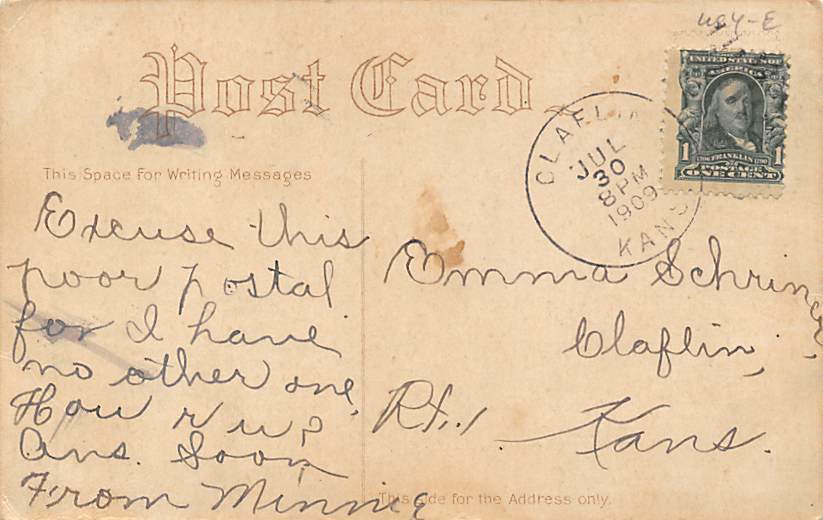 Post Card
This Space For Writing Messages
Excuse this
poor postal
for I have
no other one,
How r u?
Ans. Soon
From Minnie
CLAFLIN
JUL
30
8 PM
1909
KANS
UNITED STATES OF
AMERICA
1 1
1706 FRANKLIN 1790
POSTAGE
ONE CENT
Emma Schriner,
Claflin,
Rt. 1. Kans.
This side for the Address only.